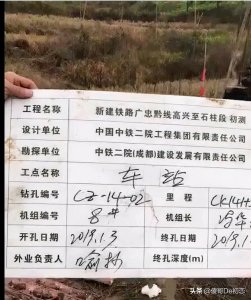 工程名称 新建铁路广忠黔线高兴至石柱段 初测
设计单位 中国中铁二院工程集团有限责任公司
勘探单位 中铁二院(成都)建设发展有限责任公司
工点名称 车站
钻孔编号 CZ-14-02 里程 CK14+
机组编号 8# 机组长
开孔日期 2019.1.3 终孔日期 2019.1.
外业负责人 终孔深度(m)
头条 @傻帮De初恋